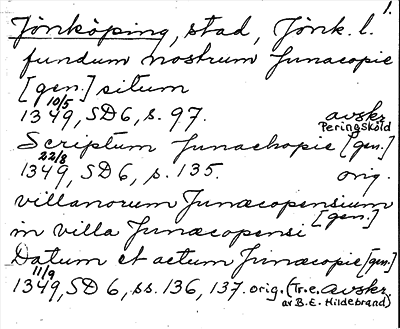 1.
Jönköping, stad, Jönk. l.
fundum nostrum Junacopie
[gen.] situm
10/5
1349, SD 6, s. 97. avskr.
Peringsköld
Scriptum Junachopie [gen.]
22/8
1349, SD 6, s. 135. orig.
villanorum Junæcopensium
[gen.]
in villa Junæcopensi
Datum et actum Junacopie [gen.]
11/9
1349, SD 6, ss. 136, 137. orig. (Tr. e. avskr.
av B. E. Hildebrand)